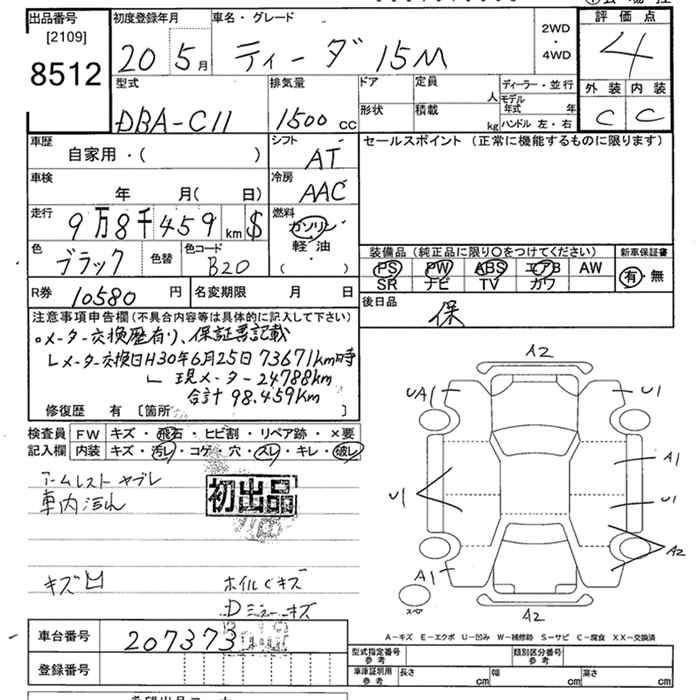 出品番号
[2109]
8512
初度登録年月
20 5月
車名・グレード
ティーダ 15M
2WD
・
4WD
評価点
4
外装 内装
C C
型式
DBA-C11
排気量
1500 CC
ドア
定員
人
ディーラー・並行
モデル年式
年
形状
積載
kg
ハンドル 左・右
車歴
自家用・( )
シフト
AT
セールスポイント (正常に機能するものに限ります)
車検
年 月( 日)
冷房
AAC
走行
9万8千459km $
燃料
ガソリン
軽・油
( )
色
ブラック
色替
色コード
B20
装備品 (純正品に限り○をつけてください)
PS PW ABS エアB AW
SR ナビ TV カワ
新車保証書
有・無
R券
10580円
名変期限 月 日
後日品
保
注意事項申告欄 (不具合内容等は具体的に記入して下さい)
○メーター交換歴有り、保証書記載
└メーター交換日H30年6月25日 73671km時
└ 現メーター24788km
合計98.459km
修復歴 有 [箇所 ]
検査員
記入欄
FW キズ・飛石・ヒビ割・リペア跡・×要
内装 キズ・汚レ・コゲ・穴・スレ・キレ・破レ
アームレスト ヤブレ
車内汚れ
初出品
キズ凹
ホイルCキズ
Dミラーキズ
A2
UA1
U1
A1
U1
U1
A2
A1
A2
スペア
A-キズ E-エクボ U-凹み W-補修跡 S-サビ C-腐食 XX-交換済
車台番号
207373
登録番号
型式指定番号
参考
類別区分番号
参考
車庫証明用
参考
長さ cm 幅 cm 高さ cm